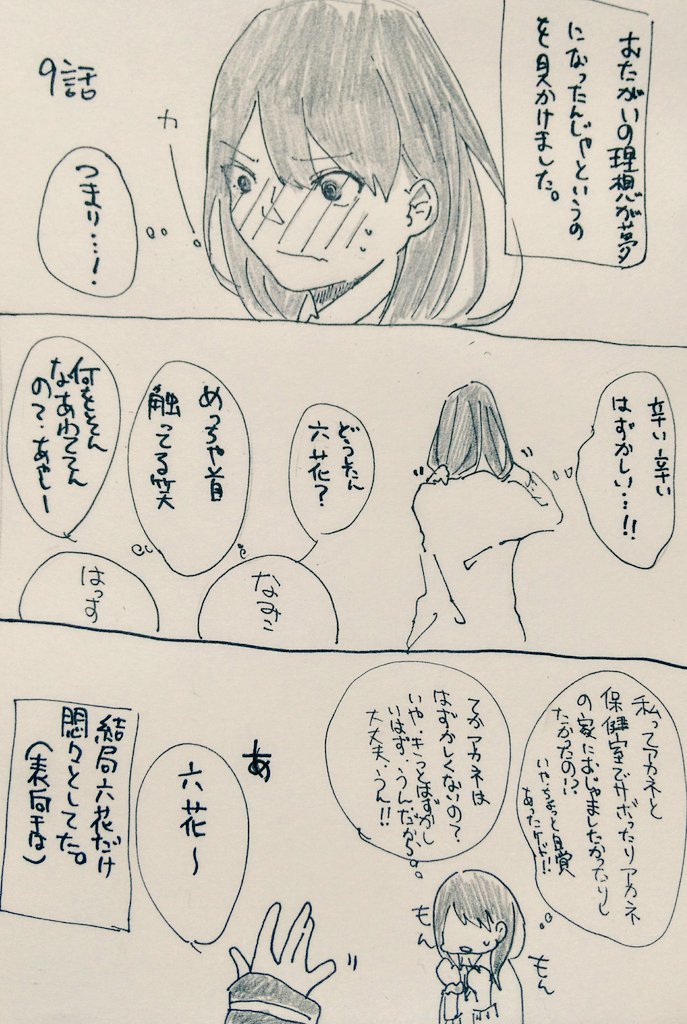 おたがいの理想が夢
になったんじゃというの
を見かけました。
9話
カ
つまり…!
辛い辛い
はずかしい…!!
どったん
六花?
めっちゃ首
触ってる笑
何をそんな
なあわててん
の?あやしー
なみこ
はっす
私ってアカネと
保健室でサボったりアカネ
の家におじゃましたかったりし
たかったの!?
いや、ちょっと興
あったけど!!
てかアカネは
はずかしくないの?
いや、きっとはずかし
いはず、うんだから
大丈夫、うん!!
もん
もん
あ
六花〜
結局六花だけ
悶々としてた。
(表向きは)